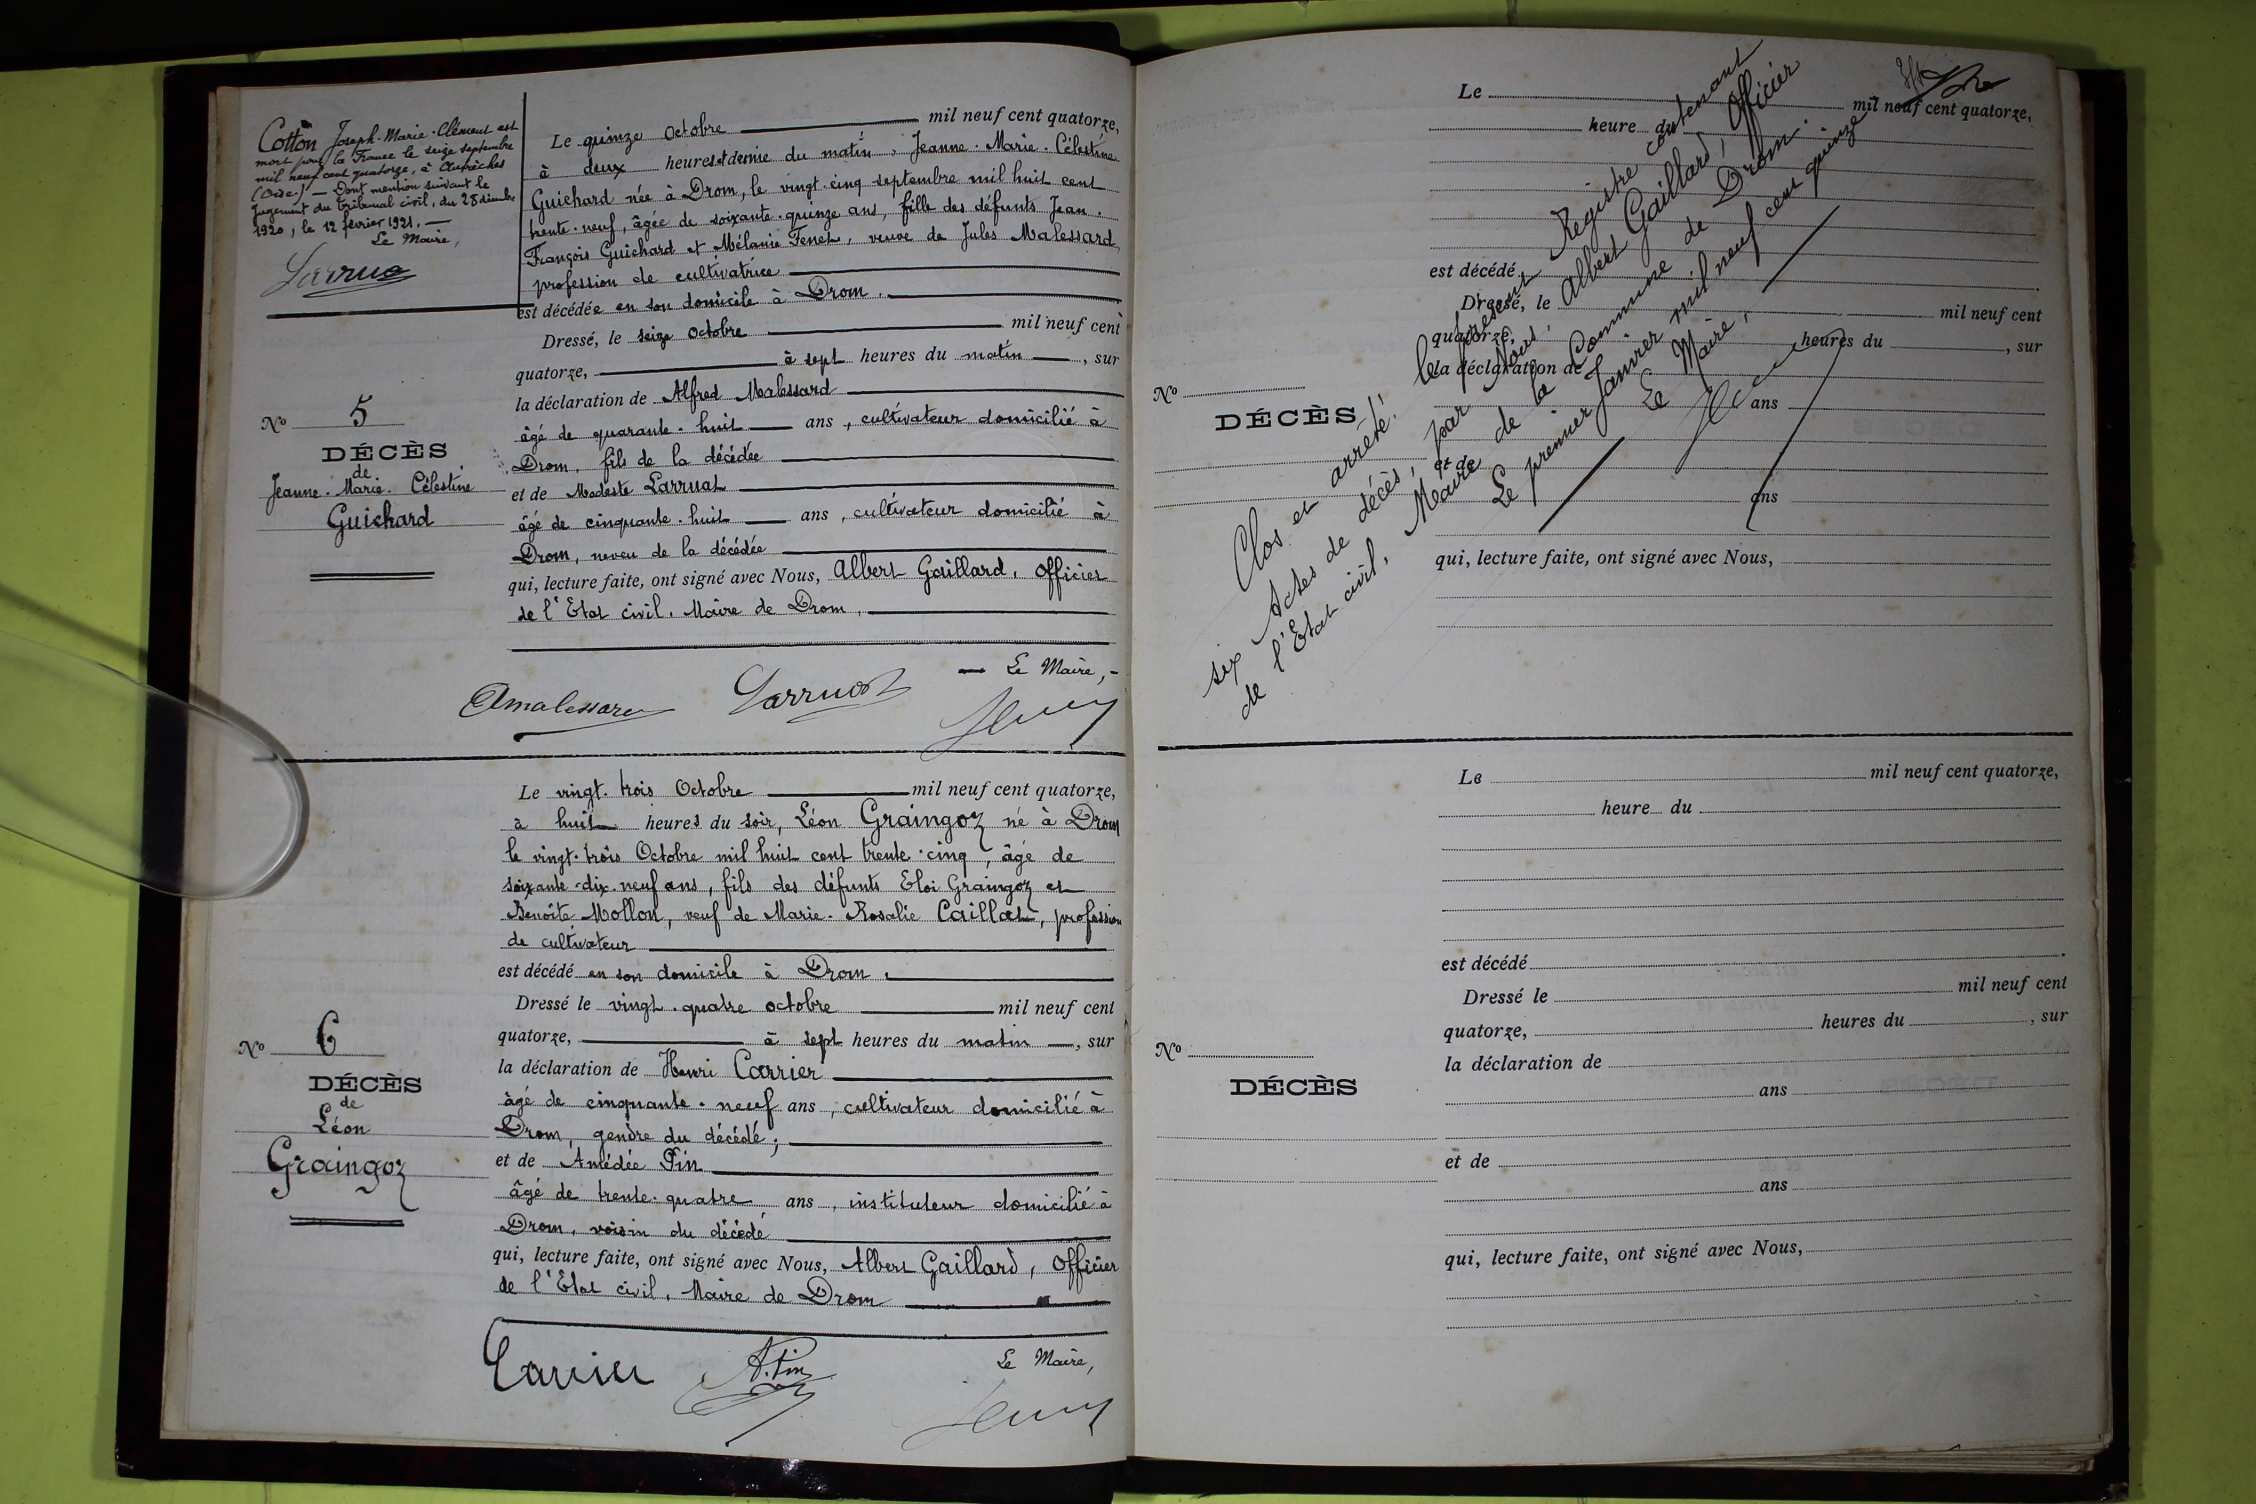 Cotton Joseph-Marie-Clément est
mort pour la France le seize septembre
mil neuf cent quatorze, à Autrèches
(Oise) — Dont mention suivant le
Jugement du Tribunal civil, du 28 décembre
1920, le 12 février 1921. —
Le Maire,
Larruat
Le quinze Octobre mil neuf cent quatorze,
à deux heures et demie du matin, Jeanne-Marie-Célestine
Guichard née à Drom, le vingt-cinq septembre mil huit cent
trente-neuf, âgée de soixante-quinze ans, fille des défunts Jean-
François Guichard et Mélanie Fenet, veuve de Jules Malessard,
profession de cultivatrice
est décédée en son domicile à Drom.
Dressé, le seize octobre mil neuf cent
quatorze, à sept heures du matin, sur
la déclaration de Alfred Malessard
âgé de quarante-huit ans, cultivateur domicilié à
Drom, fils de la décédée
et de Modeste Larruat
âgé de cinquante-huit ans, cultivateur domicilié à
Drom, neveu de la décédée
qui, lecture faite, ont signé avec Nous, Albert Gaillard, Officier
de l'Etat civil, Maire de Drom.
No 5
DÉCÈS
de
Jeanne-Marie-Célestine
Guichard
— Le Maire, —
Amalessard Larruat
Le vingt-trois Octobre mil neuf cent quatorze,
à huit heures du soir, Léon Graingoz né à Drom
le vingt-trois Octobre mil huit cent trente-cinq, âgé de
soixante-dix-neuf ans, fils des défunts Eloi Graingoz et
Benoîte Mollon, veuf de Marie-Rosalie Caillat, profession
de cultivateur
est décédé en son domicile à Drom.
Dressé le vingt-quatre octobre mil neuf cent
quatorze, à sept heures du matin, sur
la déclaration de Henri Carrier
âgé de cinquante-neuf ans, cultivateur domicilié à
Drom, gendre du décédé;
et de Amédée Pin
âgé de trente-quatre ans, instituteur domicilié à
Drom, voisin du décédé
qui, lecture faite, ont signé avec Nous, Albert Gaillard, Officier
de l'Etat civil, Maire de Drom
No 6
DÉCÈS
de
Léon
Graingoz
Le Maire,
Carrier A. Pin
Le mil neuf cent quatorze,
heure du
est décédé
Dressé, le mil neuf cent
quatorze, heures du , sur
la déclaration de
ans
et de
ans
qui, lecture faite, ont signé avec Nous,
No
DÉCÈS
Clos et arrêté le présent Registre contenant
six Actes de décès, par Nous, Albert Gaillard, Officier
de l'Etat civil, Maire de la Commune de Drom.
Le premier Janvier mil neuf cent quinze
Le Maire,
Le mil neuf cent quatorze,
heure du
est décédé
Dressé le mil neuf cent
quatorze, heures du , sur
la déclaration de
ans
et de
ans
qui, lecture faite, ont signé avec Nous,
No
DÉCÈS